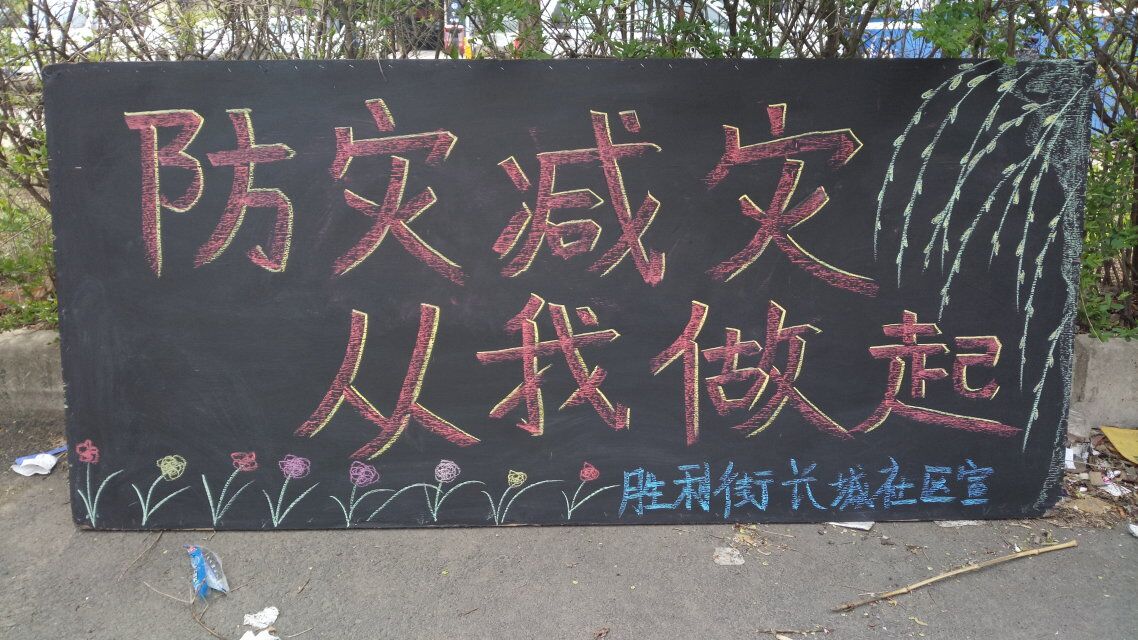 防灾减灾
从我做起
胜利街长城社区宣